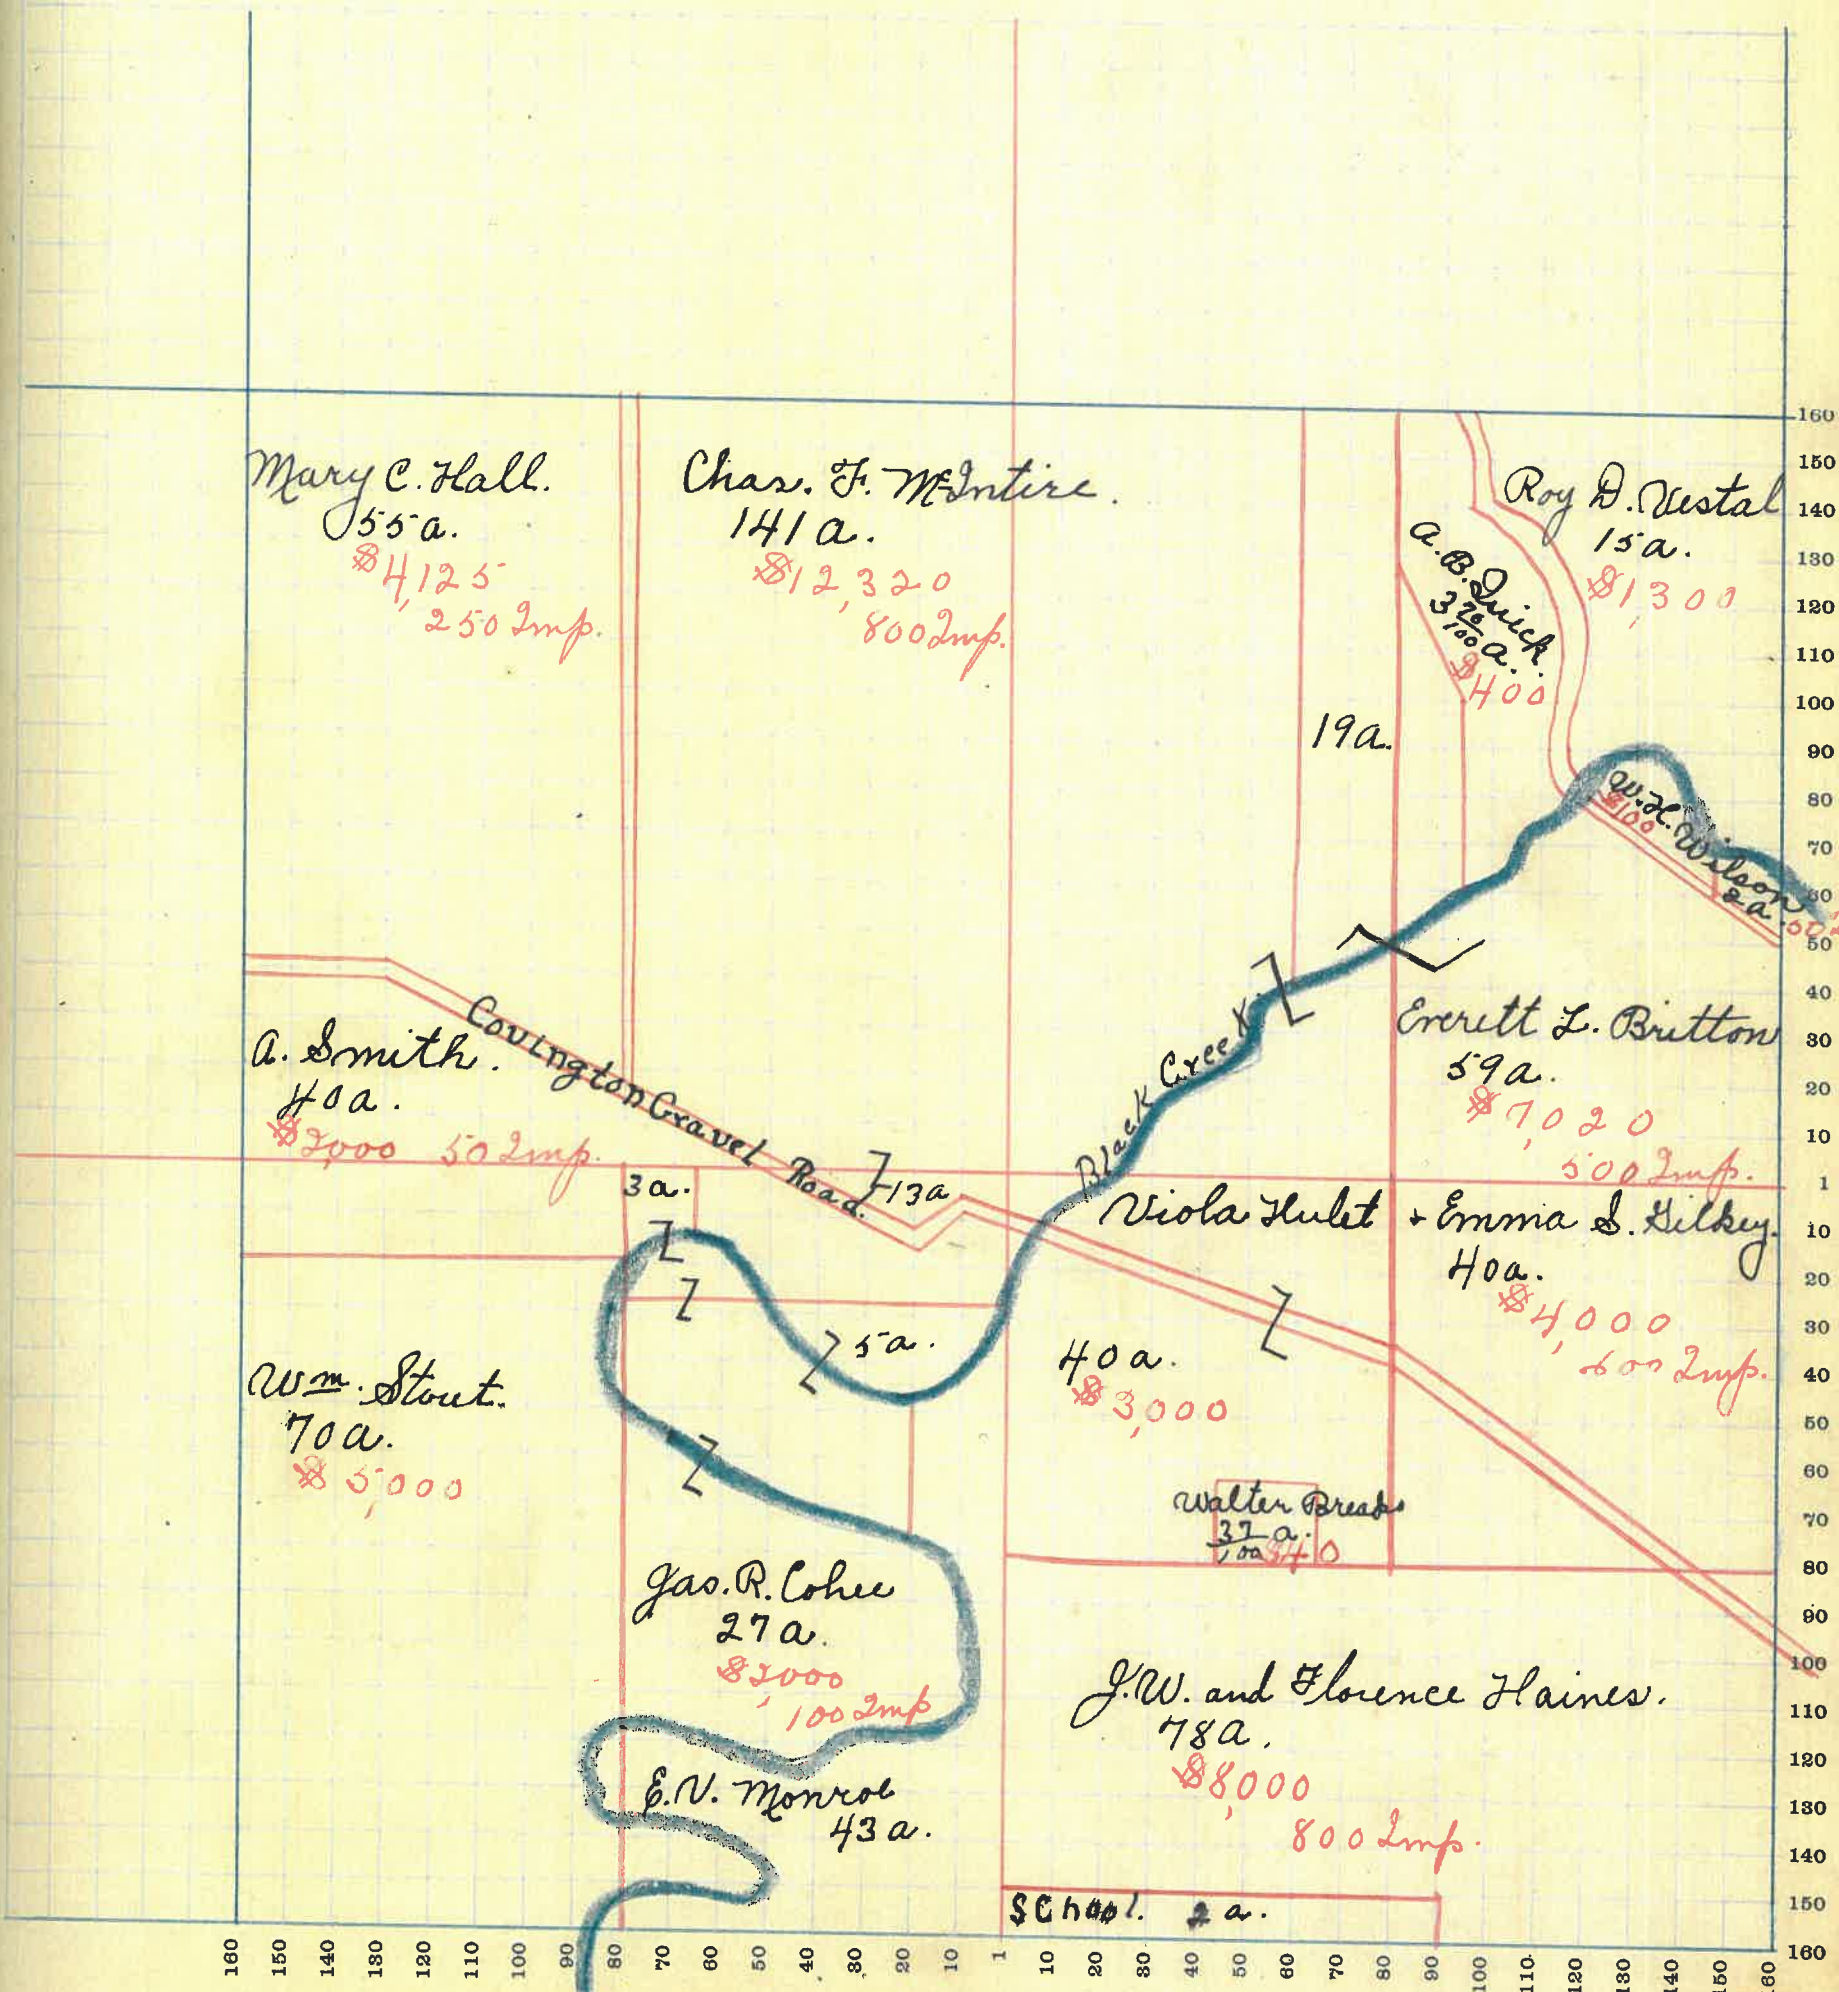 Mary C. Hall.
55a.
$4,125
250 Imp.
Chas. F. McIntire.
141a.
$12,320
800 Imp.
Roy D. Vestal
15a.
$1,300
A. B. Quick
3 70/100 a.
$400
19a.
W. H. Wilson
$100
2a.
A. Smith.
40a.
$2,000 50 Imp.
Covington Gravel Road.
Black Creek.
Everett L. Britton
59a.
$7,020
500 Imp.
3a.
13a
Viola Hulet & Emma S. Gilkey.
40a.
$4,000
600 Imp.
5a.
40a.
$3,000
Wm. Stout.
70a.
$5,000
Walter Breaks
37/100 a.
$40
Jas. R. Cohee
27a.
$2,000
100 Imp
E. V. Monroe
43a.
J. W. and Florence Haines.
78a.
$8,000
800 Imp.
School. 2 a.
160
150
140
130
120
110
100
90
80
70
60
50
40
30
20
10
1
10
20
30
40
50
60
70
80
90
100
110
120
130
140
150
160
160 150 140 130 120 110 100 90 80 70 60 50 40 30 20 10 1 10 20 30 40 50 60 70 80 90 100 110 120 130 140 150 160